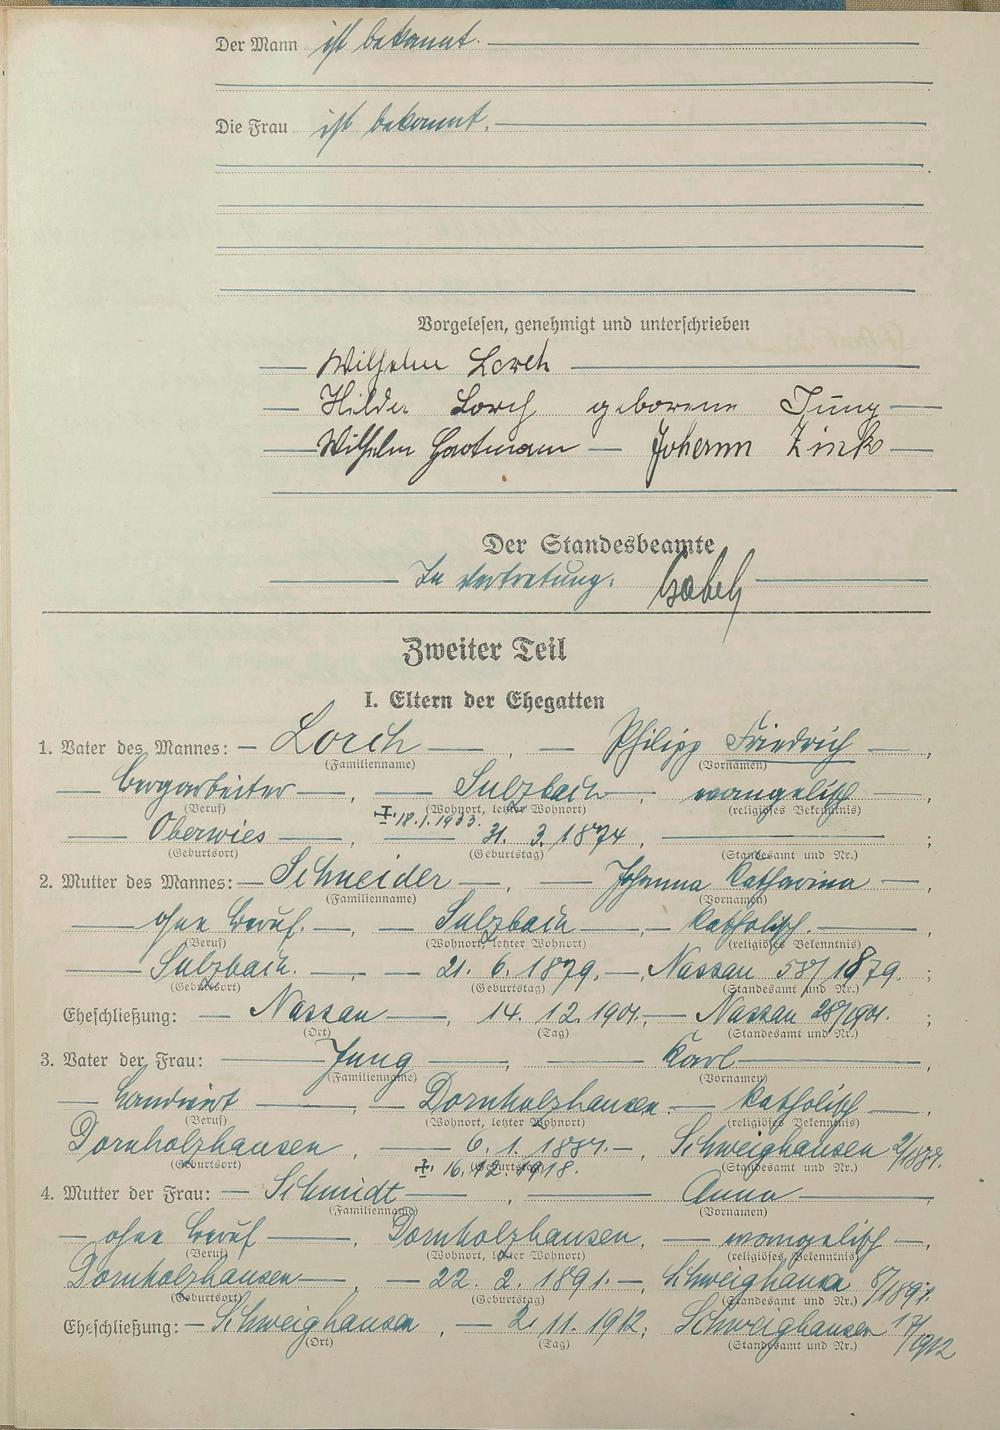 Der Mann ist bekannt.
Die Frau ist bekannt.
Vorgelesen, genehmigt und unterschrieben
Wilhelm Lorch
Hilda Lorch geborene Jung
Wilhelm Hartmann — Johann Zink
Der Standesbeamte
In Vertretung:
Zweiter Teil
I. Eltern der Ehegatten
1. Vater des Mannes: — Lorch —, — Philipp Friedrich —,
(Familienname) (Vornamen)
— Bergarbeiter —, — Sulzbach —, evangelisch —,
(Beruf) (Wohnort, letzter Wohnort) (religiöses Bekenntnis)
✝ 18.1.1933.
— Oberwies —, — 31. 3. 1874, — ;
(Geburtsort) (Geburtstag) (Standesamt und Nr.)
2. Mutter des Mannes: — Schneider —, — Johanna Katharina —,
(Familienname) (Vornamen)
— ohne Beruf. —, — Sulzbach —, — katholisch. —,
(Beruf) (Wohnort, letzter Wohnort) (religiöses Bekenntnis)
— Sulzbach. —, — 21. 6. 1879. —, Nassau 58/1879. ;
(Geburtsort) (Geburtstag) (Standesamt und Nr.)
Eheschließung: — Nassau —, 14. 12. 1901. — Nassau 28/1901. ;
(Ort) (Tag) (Standesamt und Nr.)
3. Vater der Frau: — Jung —, — Karl —,
(Familienname) (Vornamen)
— Landwirt —, — Dornholzhausen. — katholisch —,
(Beruf) (Wohnort, letzter Wohnort) (religiöses Bekenntnis)
Dornholzhausen, — 6. 1. 1887. —, Schweighausen 2/1887.
(Geburtsort) (Geburtstag) (Standesamt und Nr.)
✝ 16. 12. 1918.
4. Mutter der Frau: — Schmidt —, — Anna —,
(Familienname) (Vornamen)
— ohne Beruf —, Dornholzhausen, — evangelisch —,
(Beruf) (Wohnort, letzter Wohnort) (religiöses Bekenntnis)
Dornholzhausen —, — 22. 2. 1891. —, Schweighausen 8/1891. ;
(Geburtsort) (Geburtstag) (Standesamt und Nr.)
Eheschließung: — Schweighausen, — 2. 11. 1912, Schweighausen 17/1912
(Ort) (Tag) (Standesamt und Nr.)